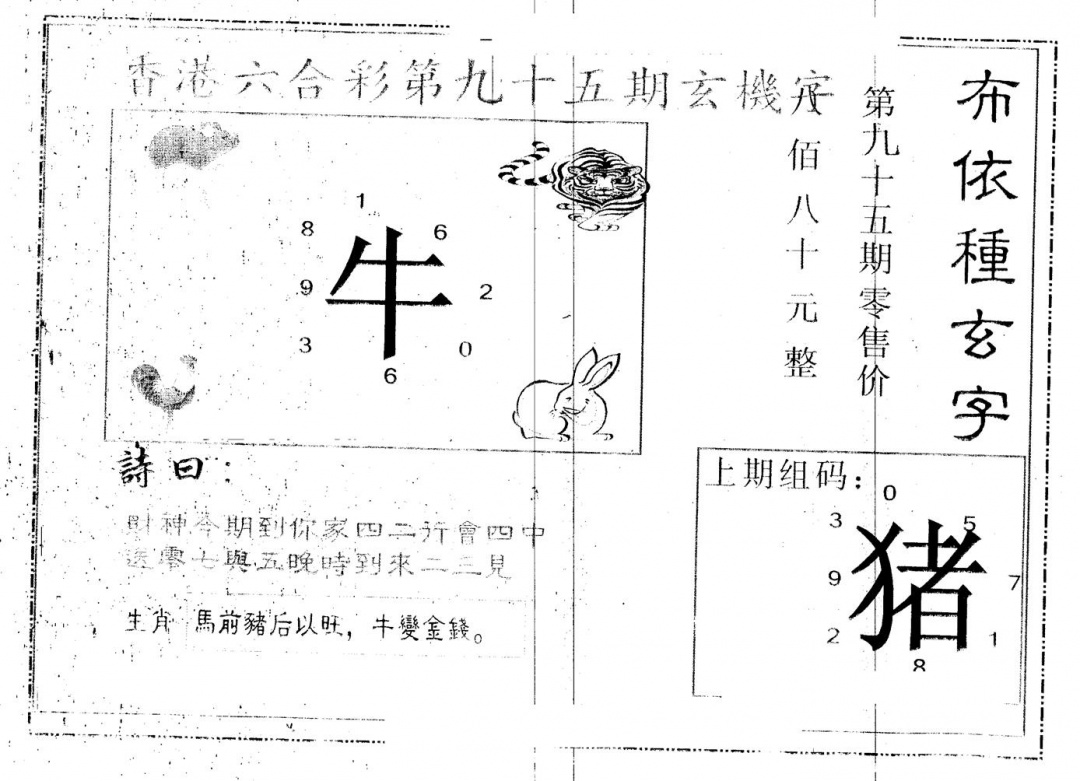 香港六合彩第九十五期玄機字
布依種玄字
第九十五期零售价
八佰八十元整
1
8
6
牛
9
2
3
0
6
詩曰:
財神今期到你家四二行會四中
送零七與五晚時到來二三見
生肖 馬前豬后以旺,牛變金錢。
上期组码:
0
3
5
猪
9
7
2
1
8